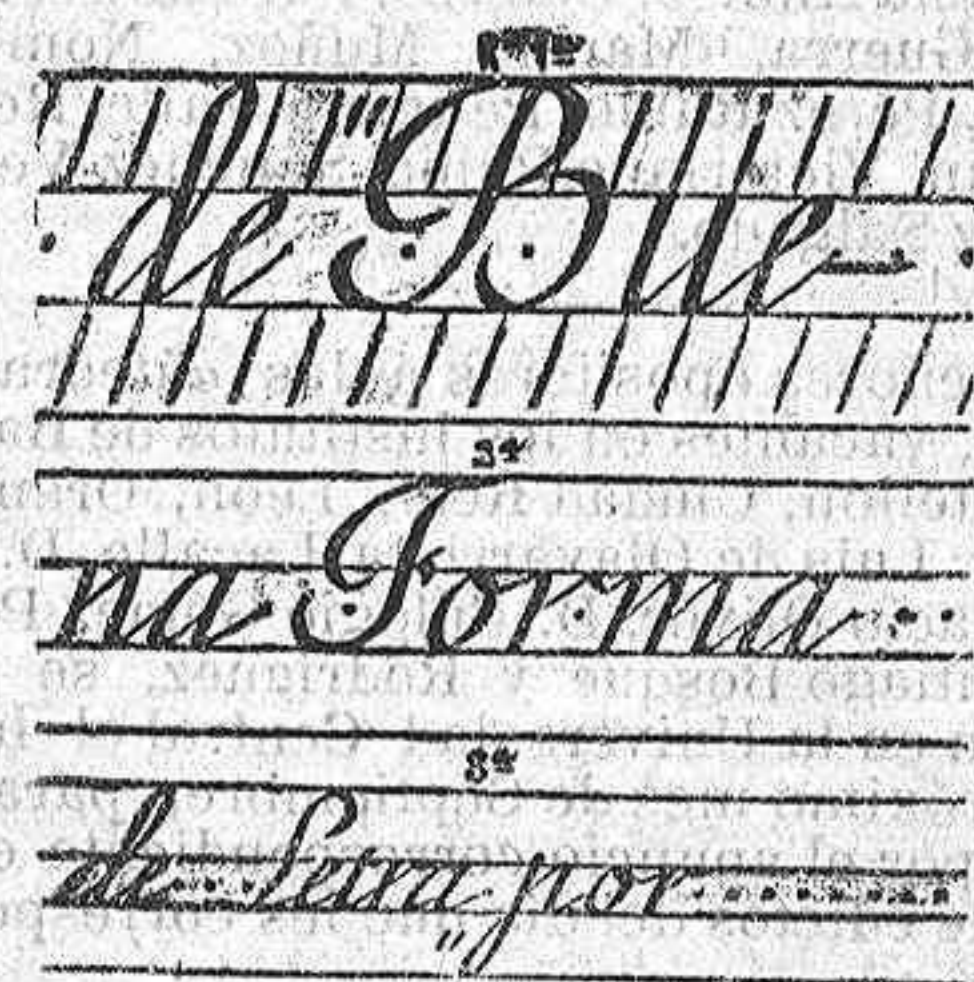 de Bue-
3ª
na Forma
3ª
de Letra por